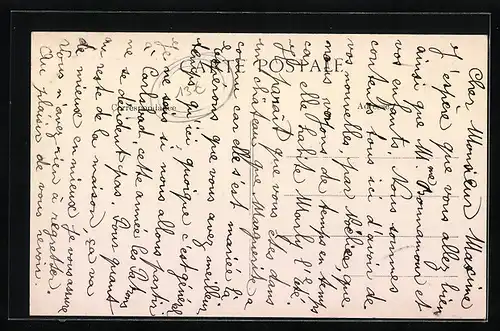 CARTE POSTALE
Correspondance
Cher Monsieur Maxime
J'espère que vous allez bien
ainsi que Mme Bonnamour et
vos enfants. Nous sommes
contents tous ici d'avoir de
vos nouvelles par Hélène que
nous voyons de temps en temps
car elle habite Marly l'été.
Il paraît que vous êtes dans
un château que Marguerite a
connu car elle s'est mariée là
espérons que vous avez meilleur
temps qu'ici quoique c'est général
Je ne sais si nous allons partir
à Cabourg cette année les Patrons
ne se décident pas. Pour quant
au reste de la maison, ça va
de mieux en mieux je vous assure
Vous n'avez rien à regretter.
Au plaisir de vous revoir.